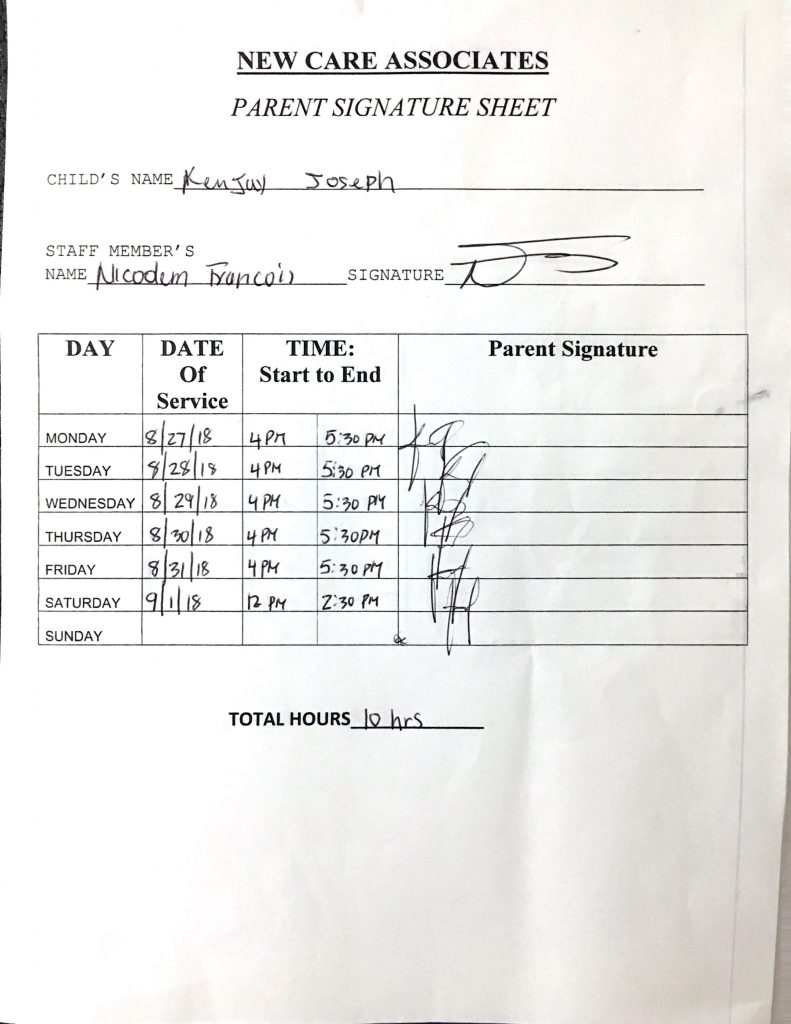 NEW CARE ASSOCIATES
PARENT SIGNATURE SHEET
CHILD'S NAME Kenjay Joseph
STAFF MEMBER'S
NAME Nicodem Francois SIGNATURE
DAY DATE Of Service TIME: Start to End Parent Signature
MONDAY 8/27/18 4 PM 5:30 PM
TUESDAY 8/28/18 4 PM 5:30 PM
WEDNESDAY 8/29/18 4 PM 5:30 PM
THURSDAY 8/30/18 4 PM 5:30 PM
FRIDAY 8/31/18 4 PM 5:30 PM
SATURDAY 9/1/18 12 PM 2:30 PM
SUNDAY
TOTAL HOURS 10 hrs